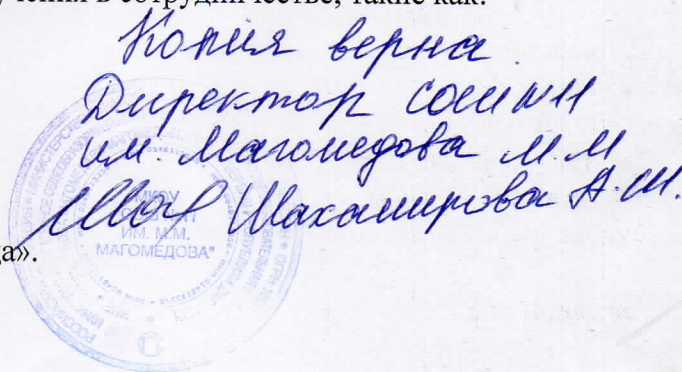 в сотрудничестве, такие как:
Копия верна.
Директор СОШ №11
им. Магомедова М.М
Шахамирова А.Ш.
МКОУ
ИМ. М.М.
МАГОМЕДОВА"